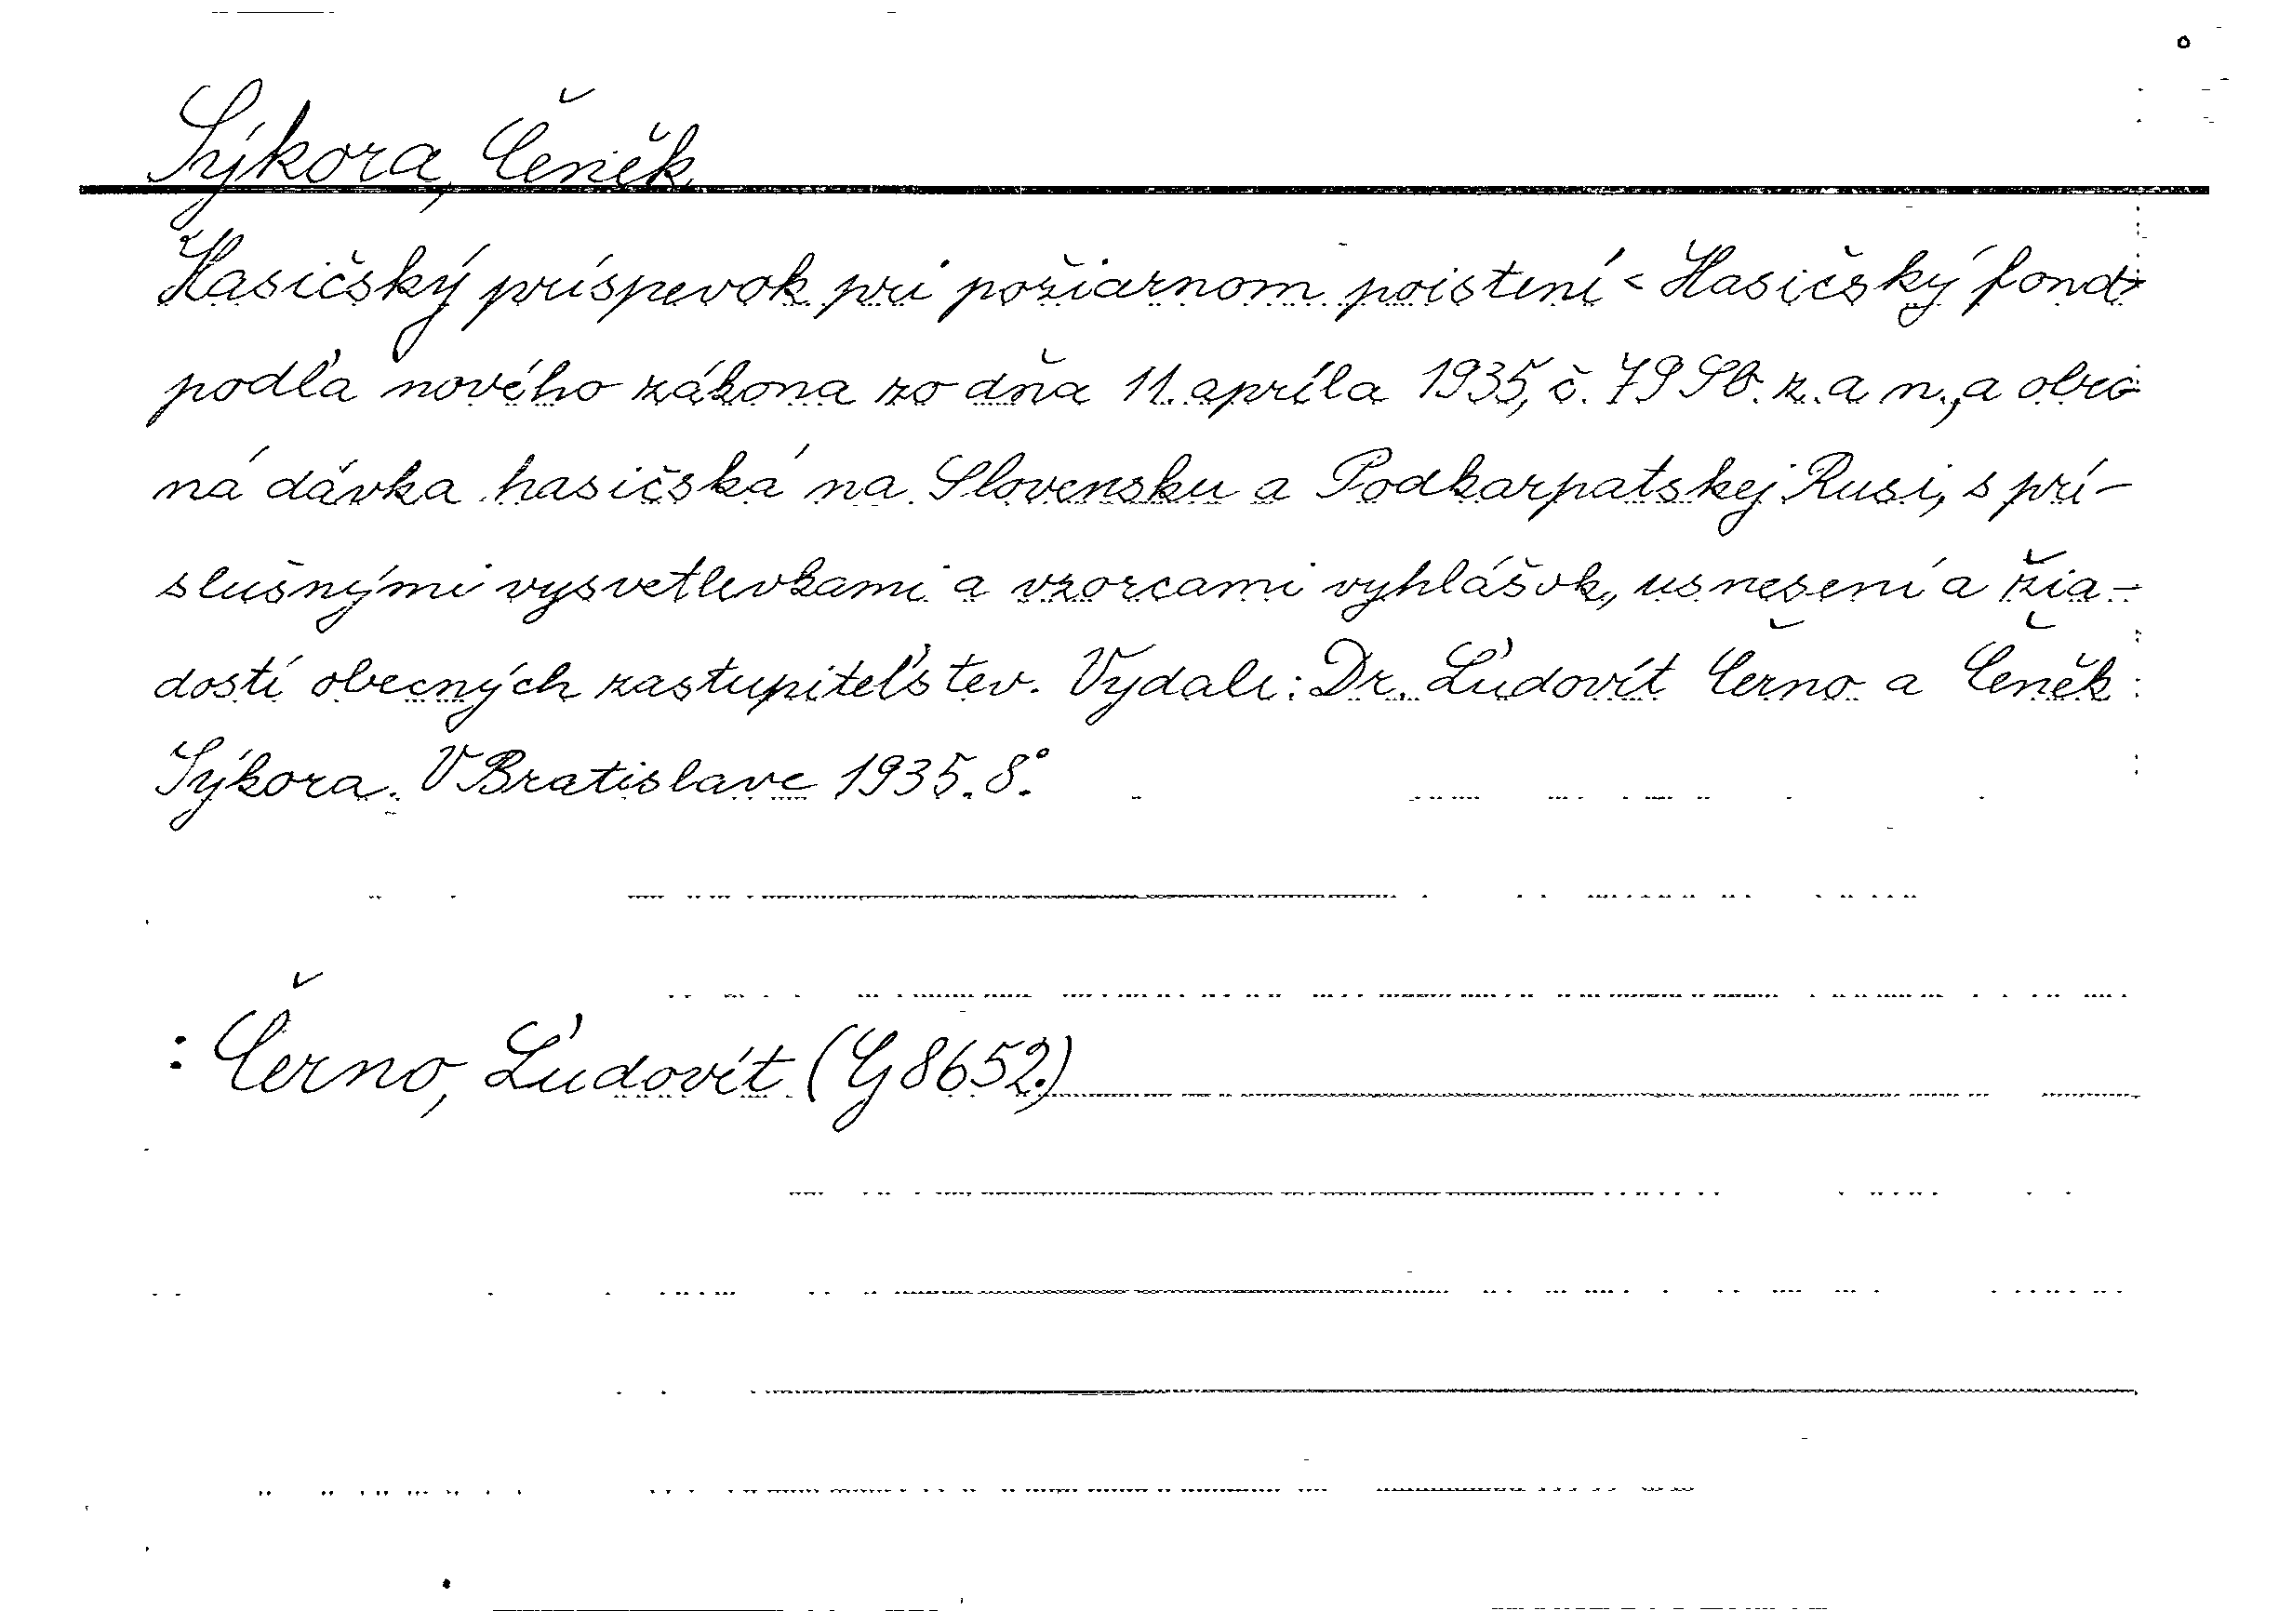 Sýkora, Čeněk
Hasičský príspevok pri požiarnom poistení < Hasičský fond >
podľa nového zákona zo dňa 11. apríla 1935, č. 79 Sb. z. a n., a obec-
ná dávka hasičská na Slovensku a Podkarpatskej Rusi, s prí-
slušnými vysvetlivkami a vzorcami vyhlášok, usnesení a žia-
dostí obecných zastupiteľstev. Vydali: Dr. Ľudovít Černo a Čeněk
Sýkora. V Bratislave 1935. 8°.
: Černo, Ľudovít (G 8652.)